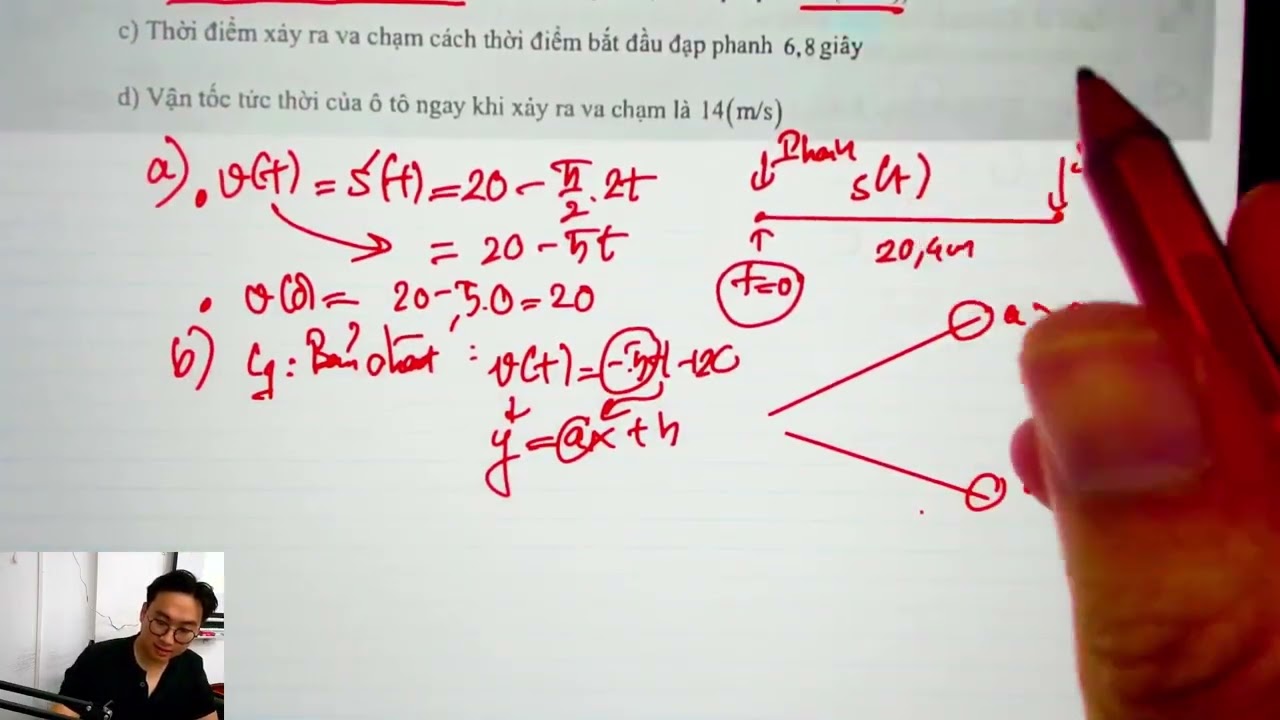 c) Thời điểm xảy ra va chạm cách thời điểm bắt đầu đạp phanh 6,8 giây
d) Vận tốc tức thời của ô tô ngay khi xảy ra va chạm là 14(m/s)
a). v(t) = s'(t) = 20 - 5/2 . 2t
= 20 - 5t
v(0) = 20 - 5.0 = 20
Phanh
s(t)
20,4m
t=0
b) Bản chất : v(t) = -5t + 20
y = ax + b
a >